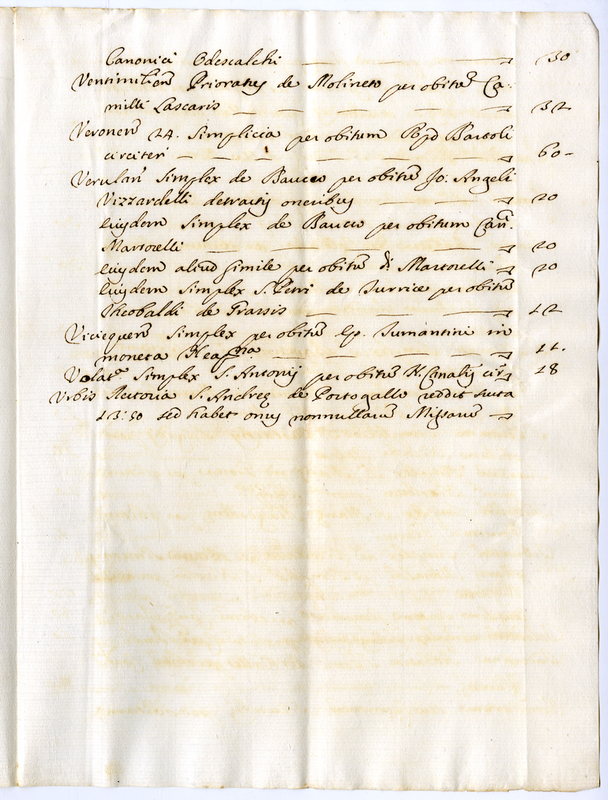 Canonici Odescalchi — 30
Ventimilien̄ Prioratus de Molineto per obitū Ca-
milli Lascaris — 32
Veronen̄ 24. Simplicia per obitum Bartoli
circiter — 60-
Verulan̄ Simplex de Bauco per obitū Jo. Angeli
Vizzardelli detractis oneribus — 20
Eiusdem Simplex de Bauco per obitum Can̄.
Martorelli — 20
Eiusdem aliud simile per obitū d. Martorelli — 20
Eiusdem Simplex S. Petri de per obitū
Theobaldi de Grassis — 42
Simplex per obitū Ep. in
moneta — 11.
Volatē. Simplex S. Antonij per obitū cir. — 18
Urbis Rectoria S. Andreę de Portogallo reddit scuta
43:50 sed habet onus nonnullarū Missarū —